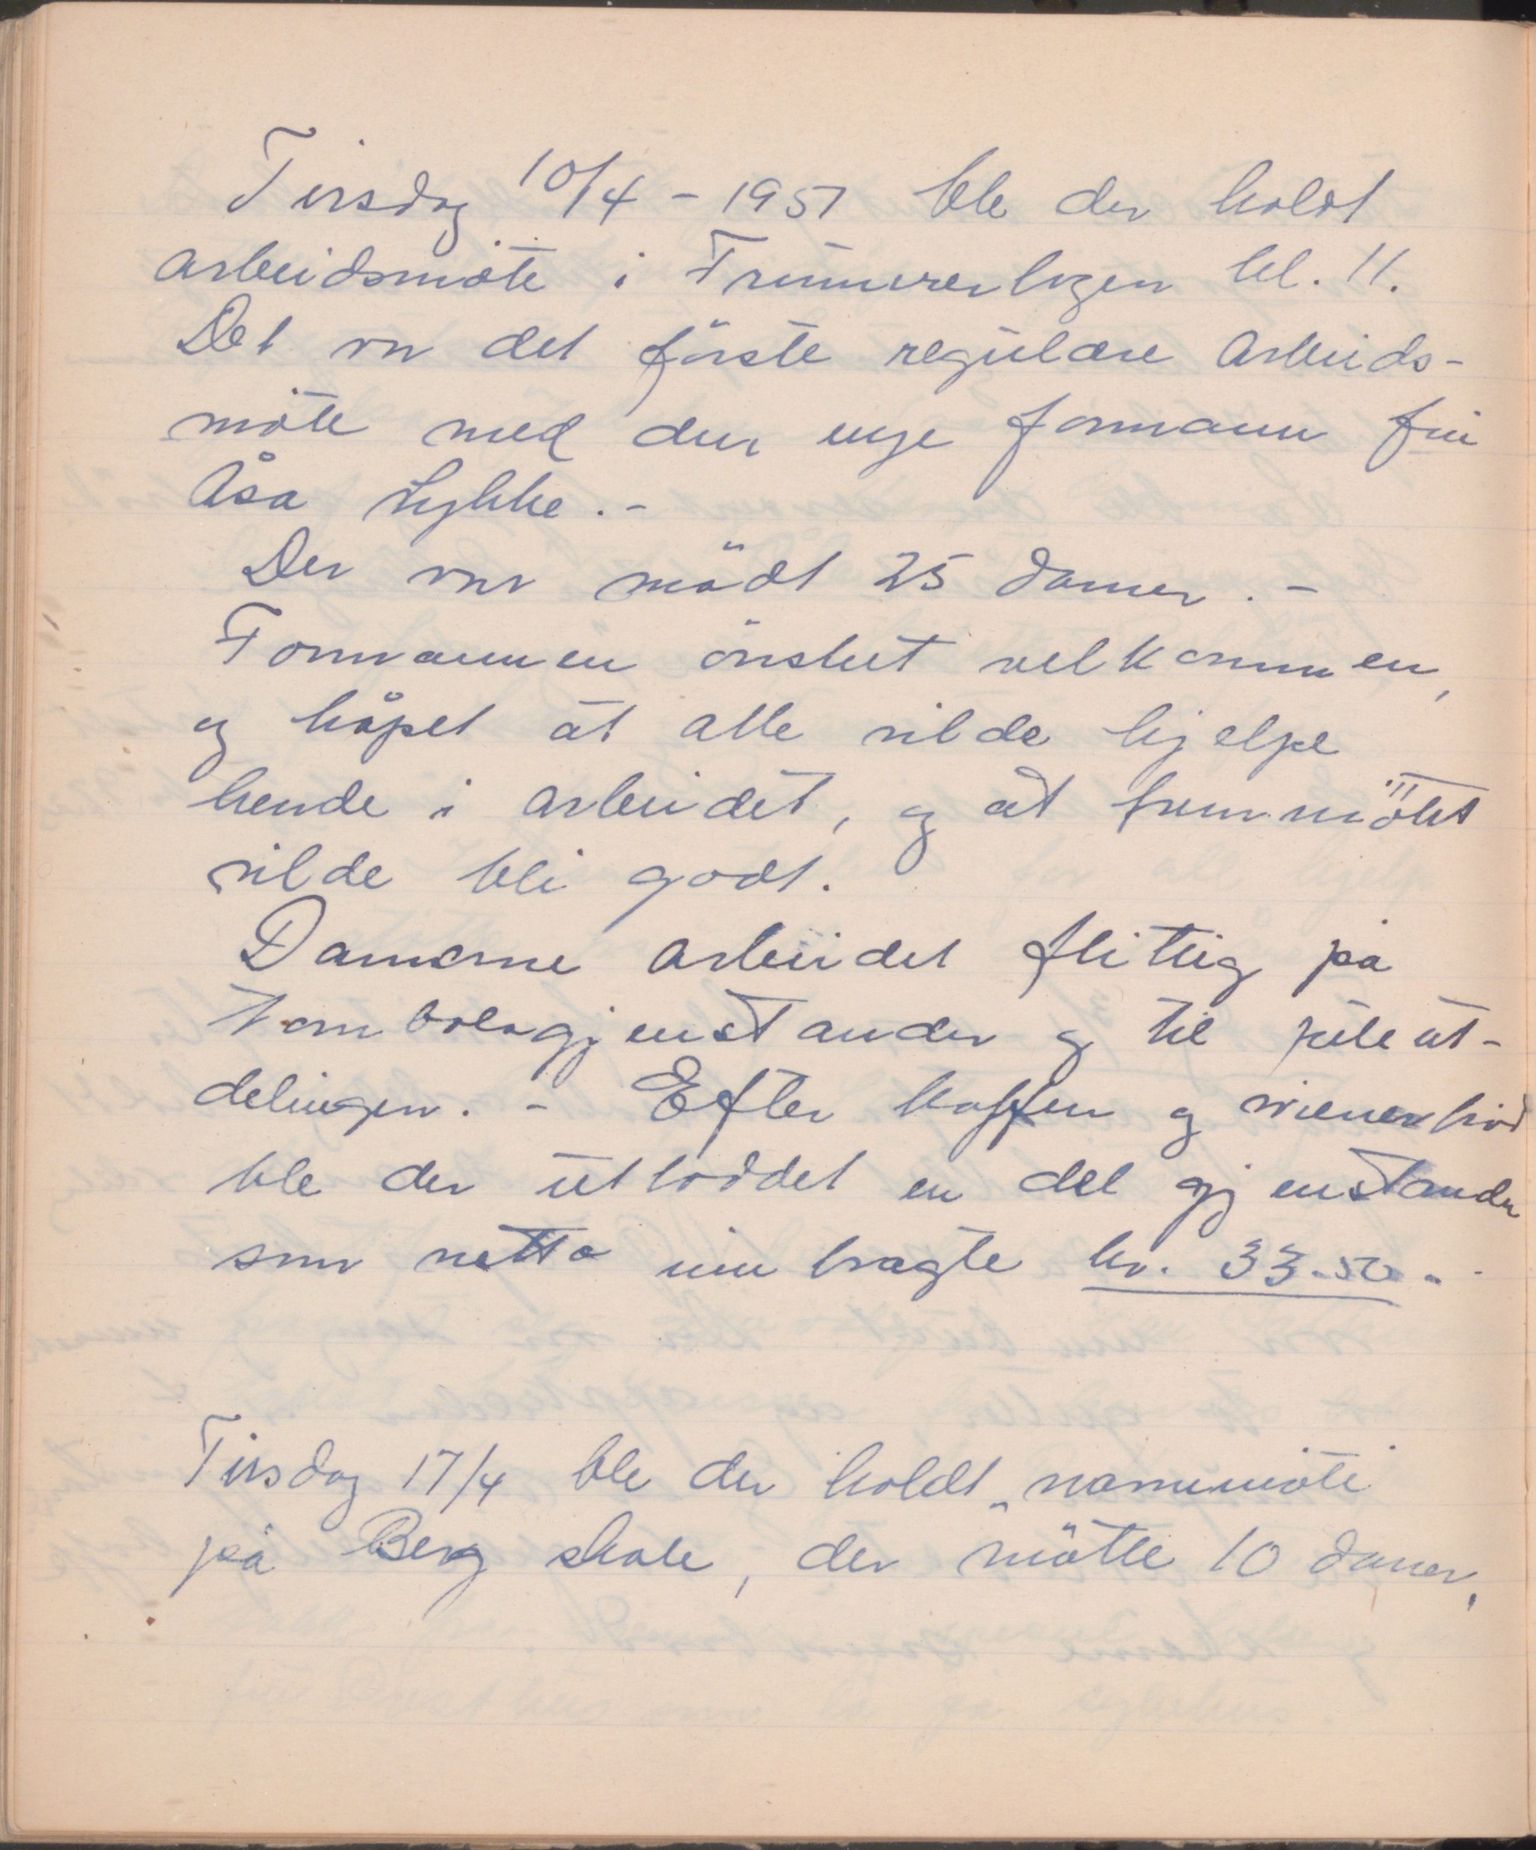 Tirsdag 10/4 - 1951 ble der holdt
arbeidsmöte i Frimurerlogen kl. 11.
Det var det förste regulære arbeids-
möte med den nye formann fru
Åsa Lykke. -
Der var mödt 25 damer. -
Formannen önsket velkommen,
og håpet at alle vilde hjelpe
hende i arbeidet, og at fremmötet
vilde bli godt.
Damerne arbeidet flittig på
tombolagjenstander og til juleut-
delingen. - Efter kaffen og wienerbröd
ble der utloddet en del gjenstander
som netto innbragte kr. 33.50.-
Tirsdag 17/4 ble der holdt
på Berg skole, der mötte 10 damer,